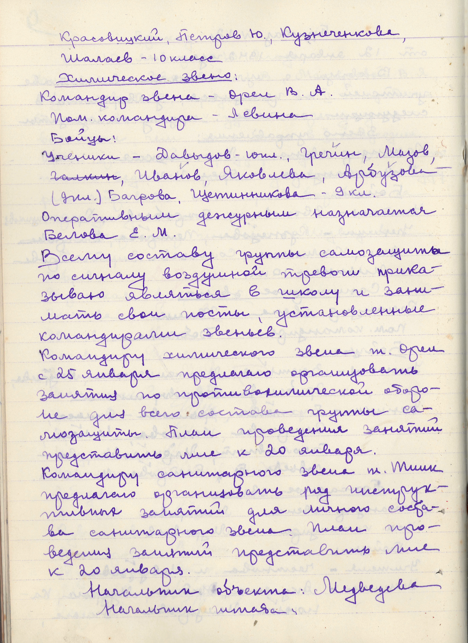 Красовицкий, Петров Ю., Кузнеченкова,
Шалаев - 10 класс
Химическое звено:
Командир звена - Орел В. А.
Пом. командира - Левина
Бойцы:
Ученики - Давыдов - 10кл., Гречин, Мазов,
Галкин, Иванов, Яковлева Арбузова
(9 кл.) Багрова, Щетинникова - 9 кл.
Оперативным дежурным назначается
Белова Е. М.
Всему составу группы самозащиты
по сигналу воздушной тревоги прика-
зываю являться в школу и зани-
мать свои посты, установленные
командирами звеньев.
Командиру химического звена т. Орел
с 25 января предлагаю организовать
занятия по противохимической оборо-
не для всего состава группы са-
мозащиты План проведения занятий
представить мне к 20 января.
Командиру санитарного звена т.
предлагаю организовать ряд инструк-
тивных занятий для личного соста-
ва санитарного звена. План про-
ведения занятий представить мне
к 20 января.
Начальник объекта: Медведева
Начальник штаба.